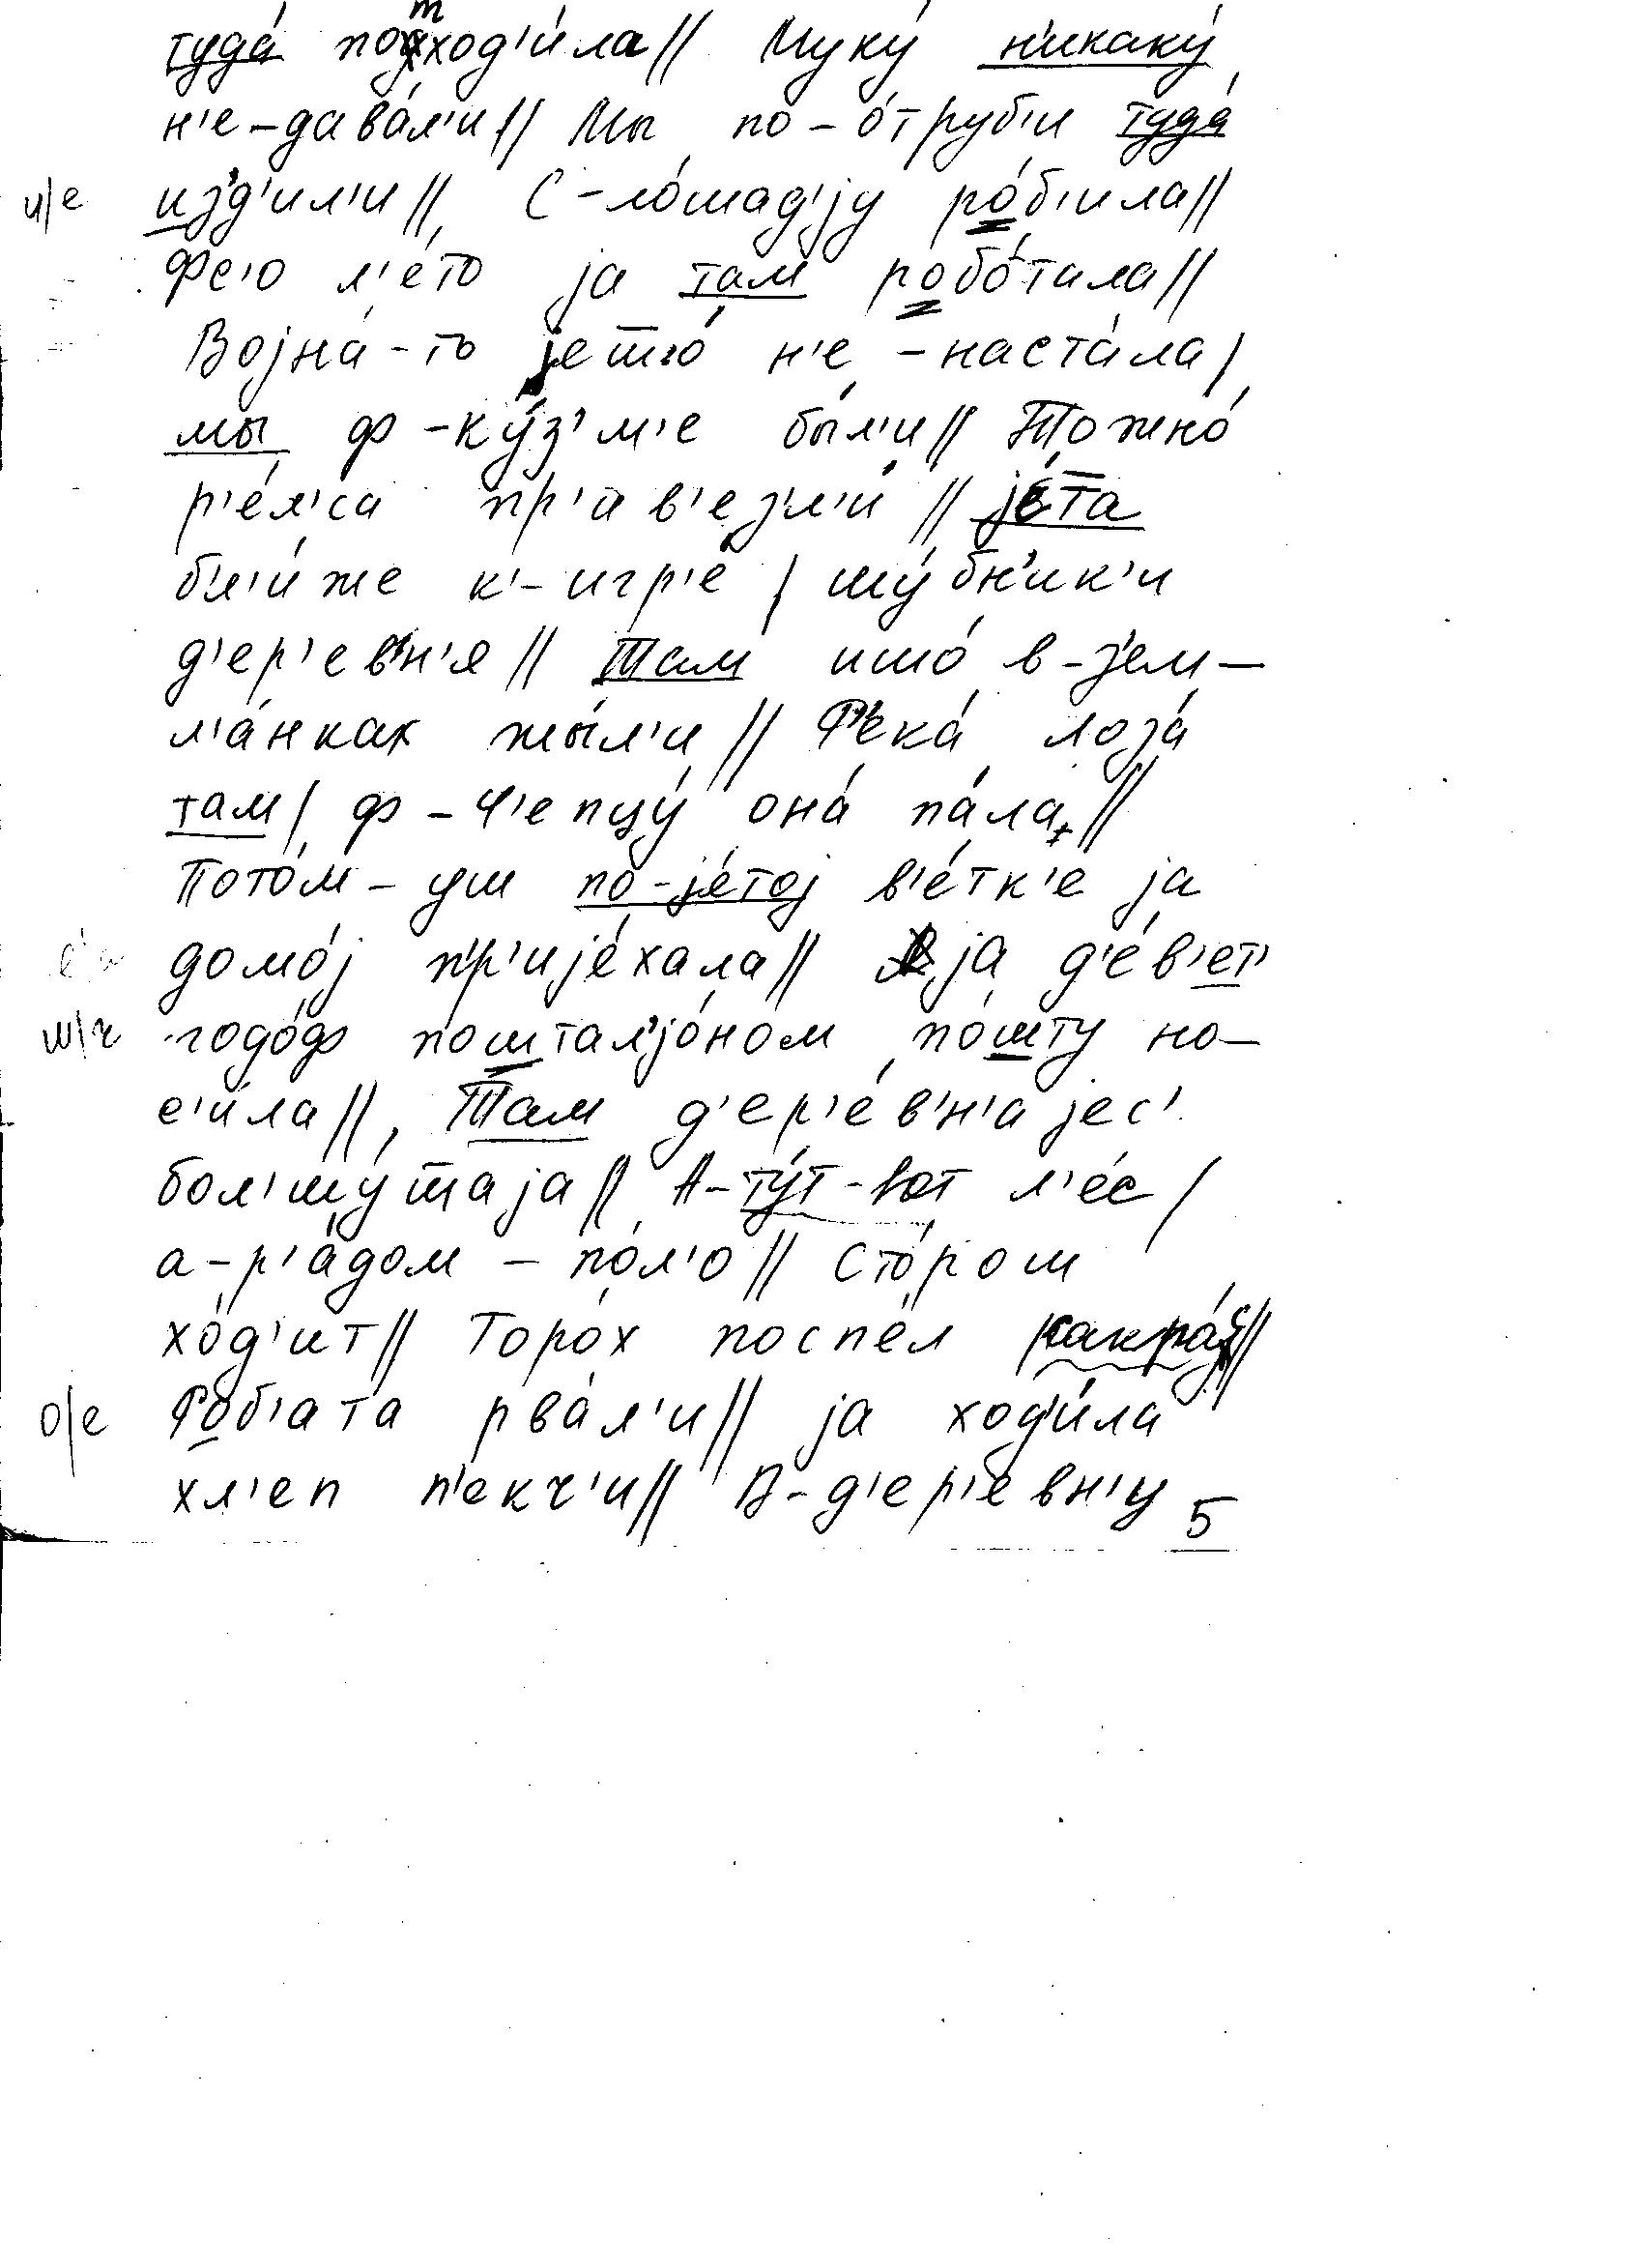 туда́ потход'и́ла// Муку́ н'икаку́
н'е-дава́л'и// Мы по-о́труб'и туда́
и/е из'д'ил'и// С-ло́шад'jу ро́б'ила//
Фс'о л'е́то jа там робо́тала//
Воjна́-то jешшо́ н'е-наста́ла/
мы ф-ку́з'м'е бы́л'и// Тожно́
р'е́л'са пр'ив'езл'и́// jе́та
бл'и́же к'-игр'е́/ шу́бн'ик'и
д'ер'евн'а// Там ишо́ в-зем-
л'а́нках жы́л'и// Р'ека́ лоза́
там/ ф-Ч'епцу́ она́ па́ла//
Пото́м-уш по-jе́тоj в'е́тк'е jа
домо́j пр'иjе́хала// jа д'е́в'ет'
ш/ч годо́ф пошталjо́ном по́шту но-
с'и́ла// Там д'ер'е́в'н'а jес'
бол'шу́шшаjа// А-ту́т-вот л'е́с/
а-р'а́дом - по́л'о// Сто́рош
хо́д'ит// Горо́х поспе́л какра́с//
о/е Роб'а́та рва́л'и// jа ход'и́ла
хл'еп п'екч'и// В-д'ер'е́вн'у 5